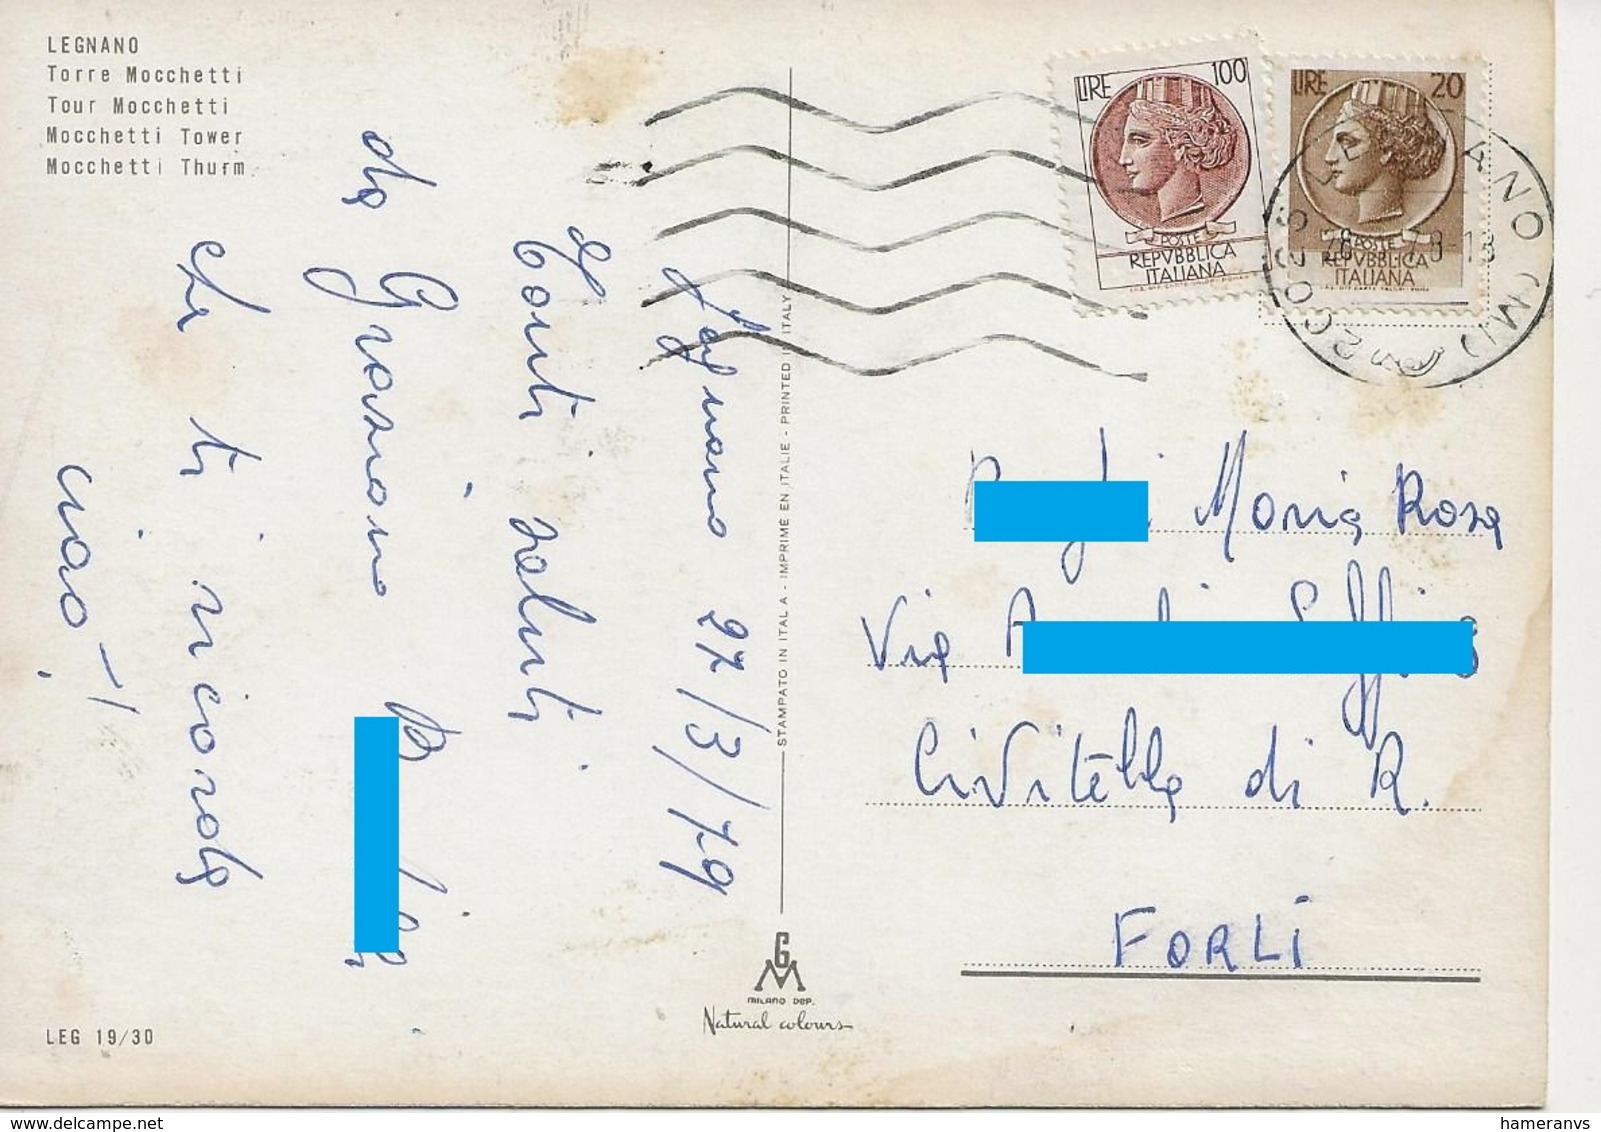 LEGNANO
Torre Mocchetti
Tour Mocchetti
Mocchetti Tower
Mocchetti Thurm
LIRE 100
POSTE
REPVBBLICA
ITALIANA
LIRE 20
POSTE
REPVBBLICA
ITALIANA
Legnano 27/3/79
Tonti saluti
da Graziano
che ti ricorda
ciao!
STAMPATO IN ITALIA - IMPRIME EN ITALIE - PRINTED IN ITALY
Maria Rosa
Via
Civitella di R.
FORLI
GM
MILANO DEP.
Natural colours
LEG 19/30
www.delcampe.net
hameranvs